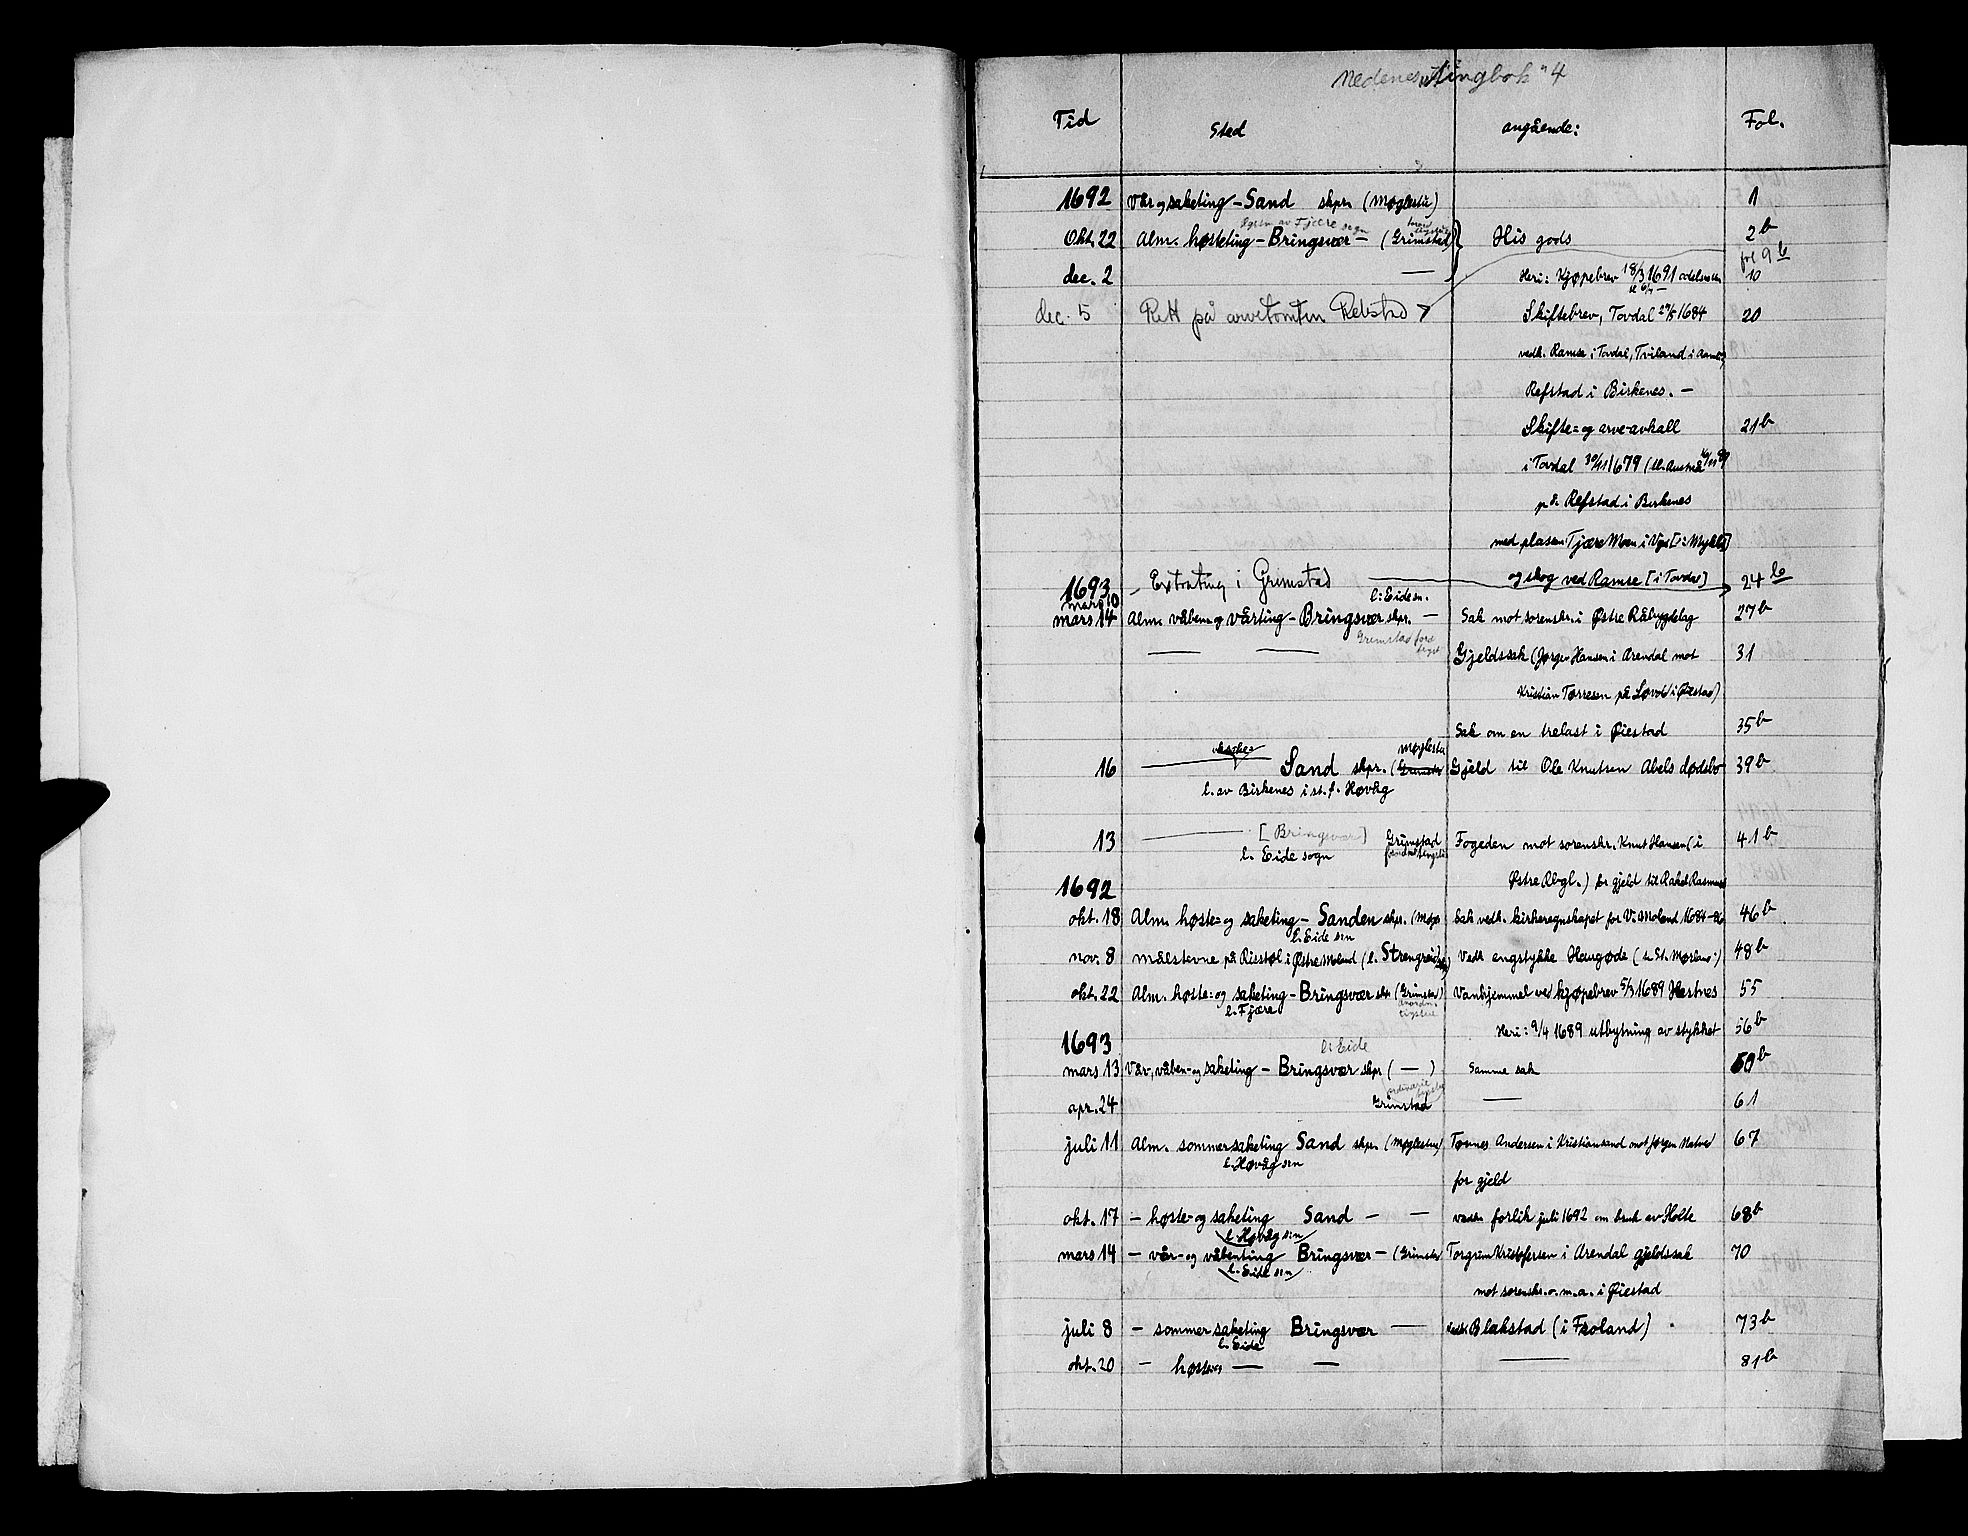 Nedenes Tingbok n 4
Tid Sted angående: Fol.
1692 Vår og saketing - Sand skpr. (Møglestu) 1
Okt. 22 Alm. høsteting - Bringsvær - (Grimstad) His gods 2b
fol 9b
dec. 2 — Heri: Kjøpebrev 18/3 1691 10
dec. 5 Rett på arvetomten Refstad Skiftebrev, Tovdal 1684 20
vedk. Ramse i Tovdal, Tviland i
Refstad i Birkenes. —
Skifte- og arve-avkall 21b
i Tovdal 30/11 1679
på Refstad i Birkenes
med plassen Tjære Moen i
1693 mars 10 - Extrating i Grimstad og skog ved Ramse [i Tovdal] 24b
l: Eide sn.
mars 14 Alm. våben- og vårting - Bringsvær skpr. — Sak mot sorenskr. i Østre Råbygdelag 27b
— — Gjeldssak (Jørgen Hansen i Arendal mot 31
Kristian Torresen på Løvold i Øiestad)
Sak om en trelast i Øiestad 35b
Møglestu
16 — Sand skpr. (Grimstad Gjeld til Ole Knutsen Abels dødsbo 39b
l. av Birkenes i st. f. Høvåg
13 — [Bringsvær] Grimstad Fogeden mot sorenskr. Knut Hansen (i 41b
l. Eide sogn
Østre Rbgl.) for gjeld til Rakel Rasmus
1692
okt. 18 Alm. høste- og saketing - Sanden skpr. (Møgl Sak vedk. kirkeregnskapet for V. Moland 1684-86 46b
l. Eide sn
nov. 8 målstevne på Riestøl i Østre Moland (l. Strengreid Vedk engstykke Haugøde 48b
okt. 22 Alm. høste- og saketing - Bringsvær skr (Grimstad) Vanhjemmel ved kjøpebrev 5/3 1689 Hestnes 55
l. Fjære
Heri: 9/4 1689 utbytning av stykket 56b
1693
l: Eide
mars 13 Vår, våben- og saketing - Bringsvær skpr ( — ) Samme sak 59b
apr. 24 Grimstad — 61
juli 11 Alm. sommersaketing Sand skpr. (Møglestu) Tønnes Andersen i Kristiansand mot Jørgen 67
l. Høvåg sn
for gjeld
okt. 17 - høste- og saketing Sand — — vedk. forlik juli 1692 om bruk av Holte 68b
l. Høvåg sn
mars 14 - vår- og våbenting Bringsvær - (Grimstad Torgrim Kristofersen i Arendal gjeldssak 70
l. Eide sn
mot sorenskr. o. m. a. i Øiestad
juli 8 - sommersaketing Bringsvær — vedk. Blakstad (i Froland) 73b
l. Eide
okt. 20 - høste — — — 81b